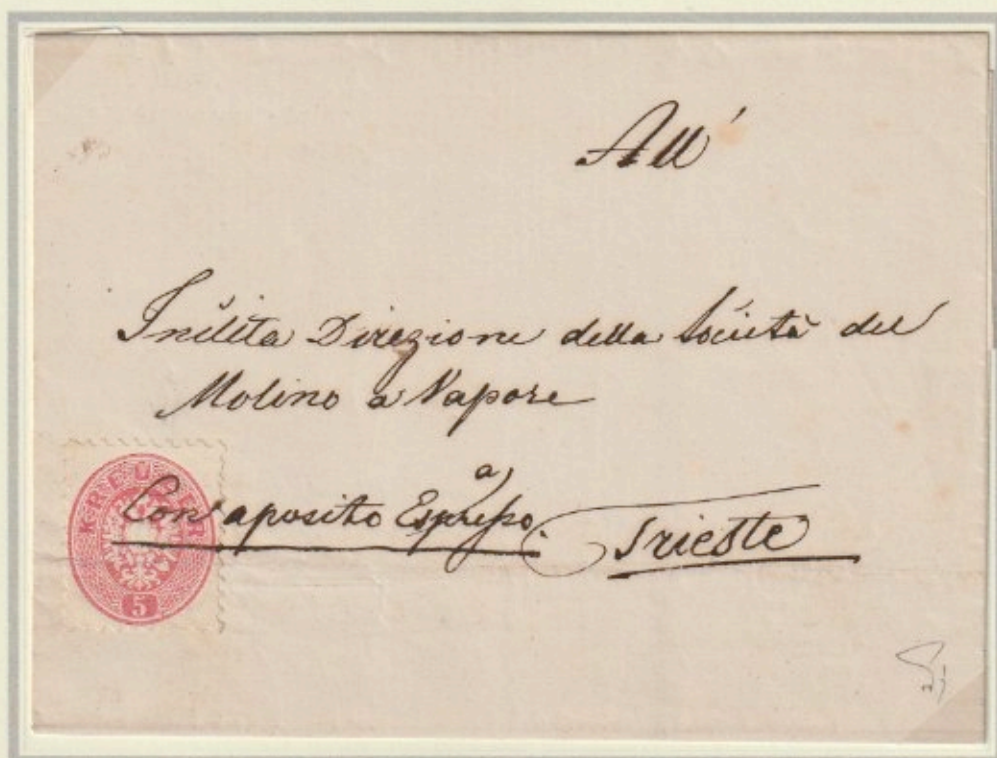 All'
Inclita Direzione della Società del
Molino a Vapore
a
Con aposito Espresso.
Trieste
KREUZER
5